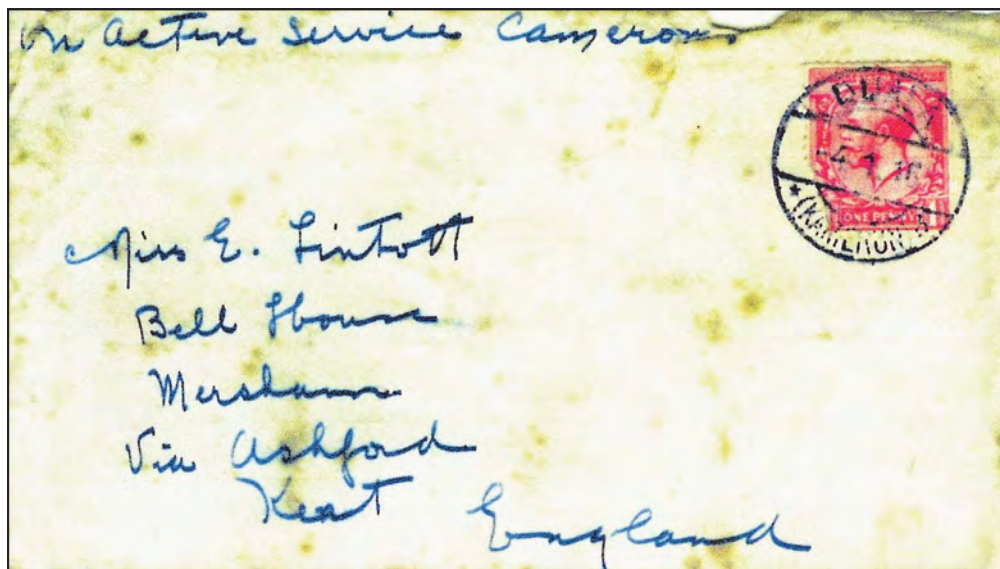 On Active Service Cameroons
DUALA
1 16
* (KAMERUN)
ONE PENNY 1
Miss E. Lintott
Bell House
Mersham
Via Ashford
Kent
England